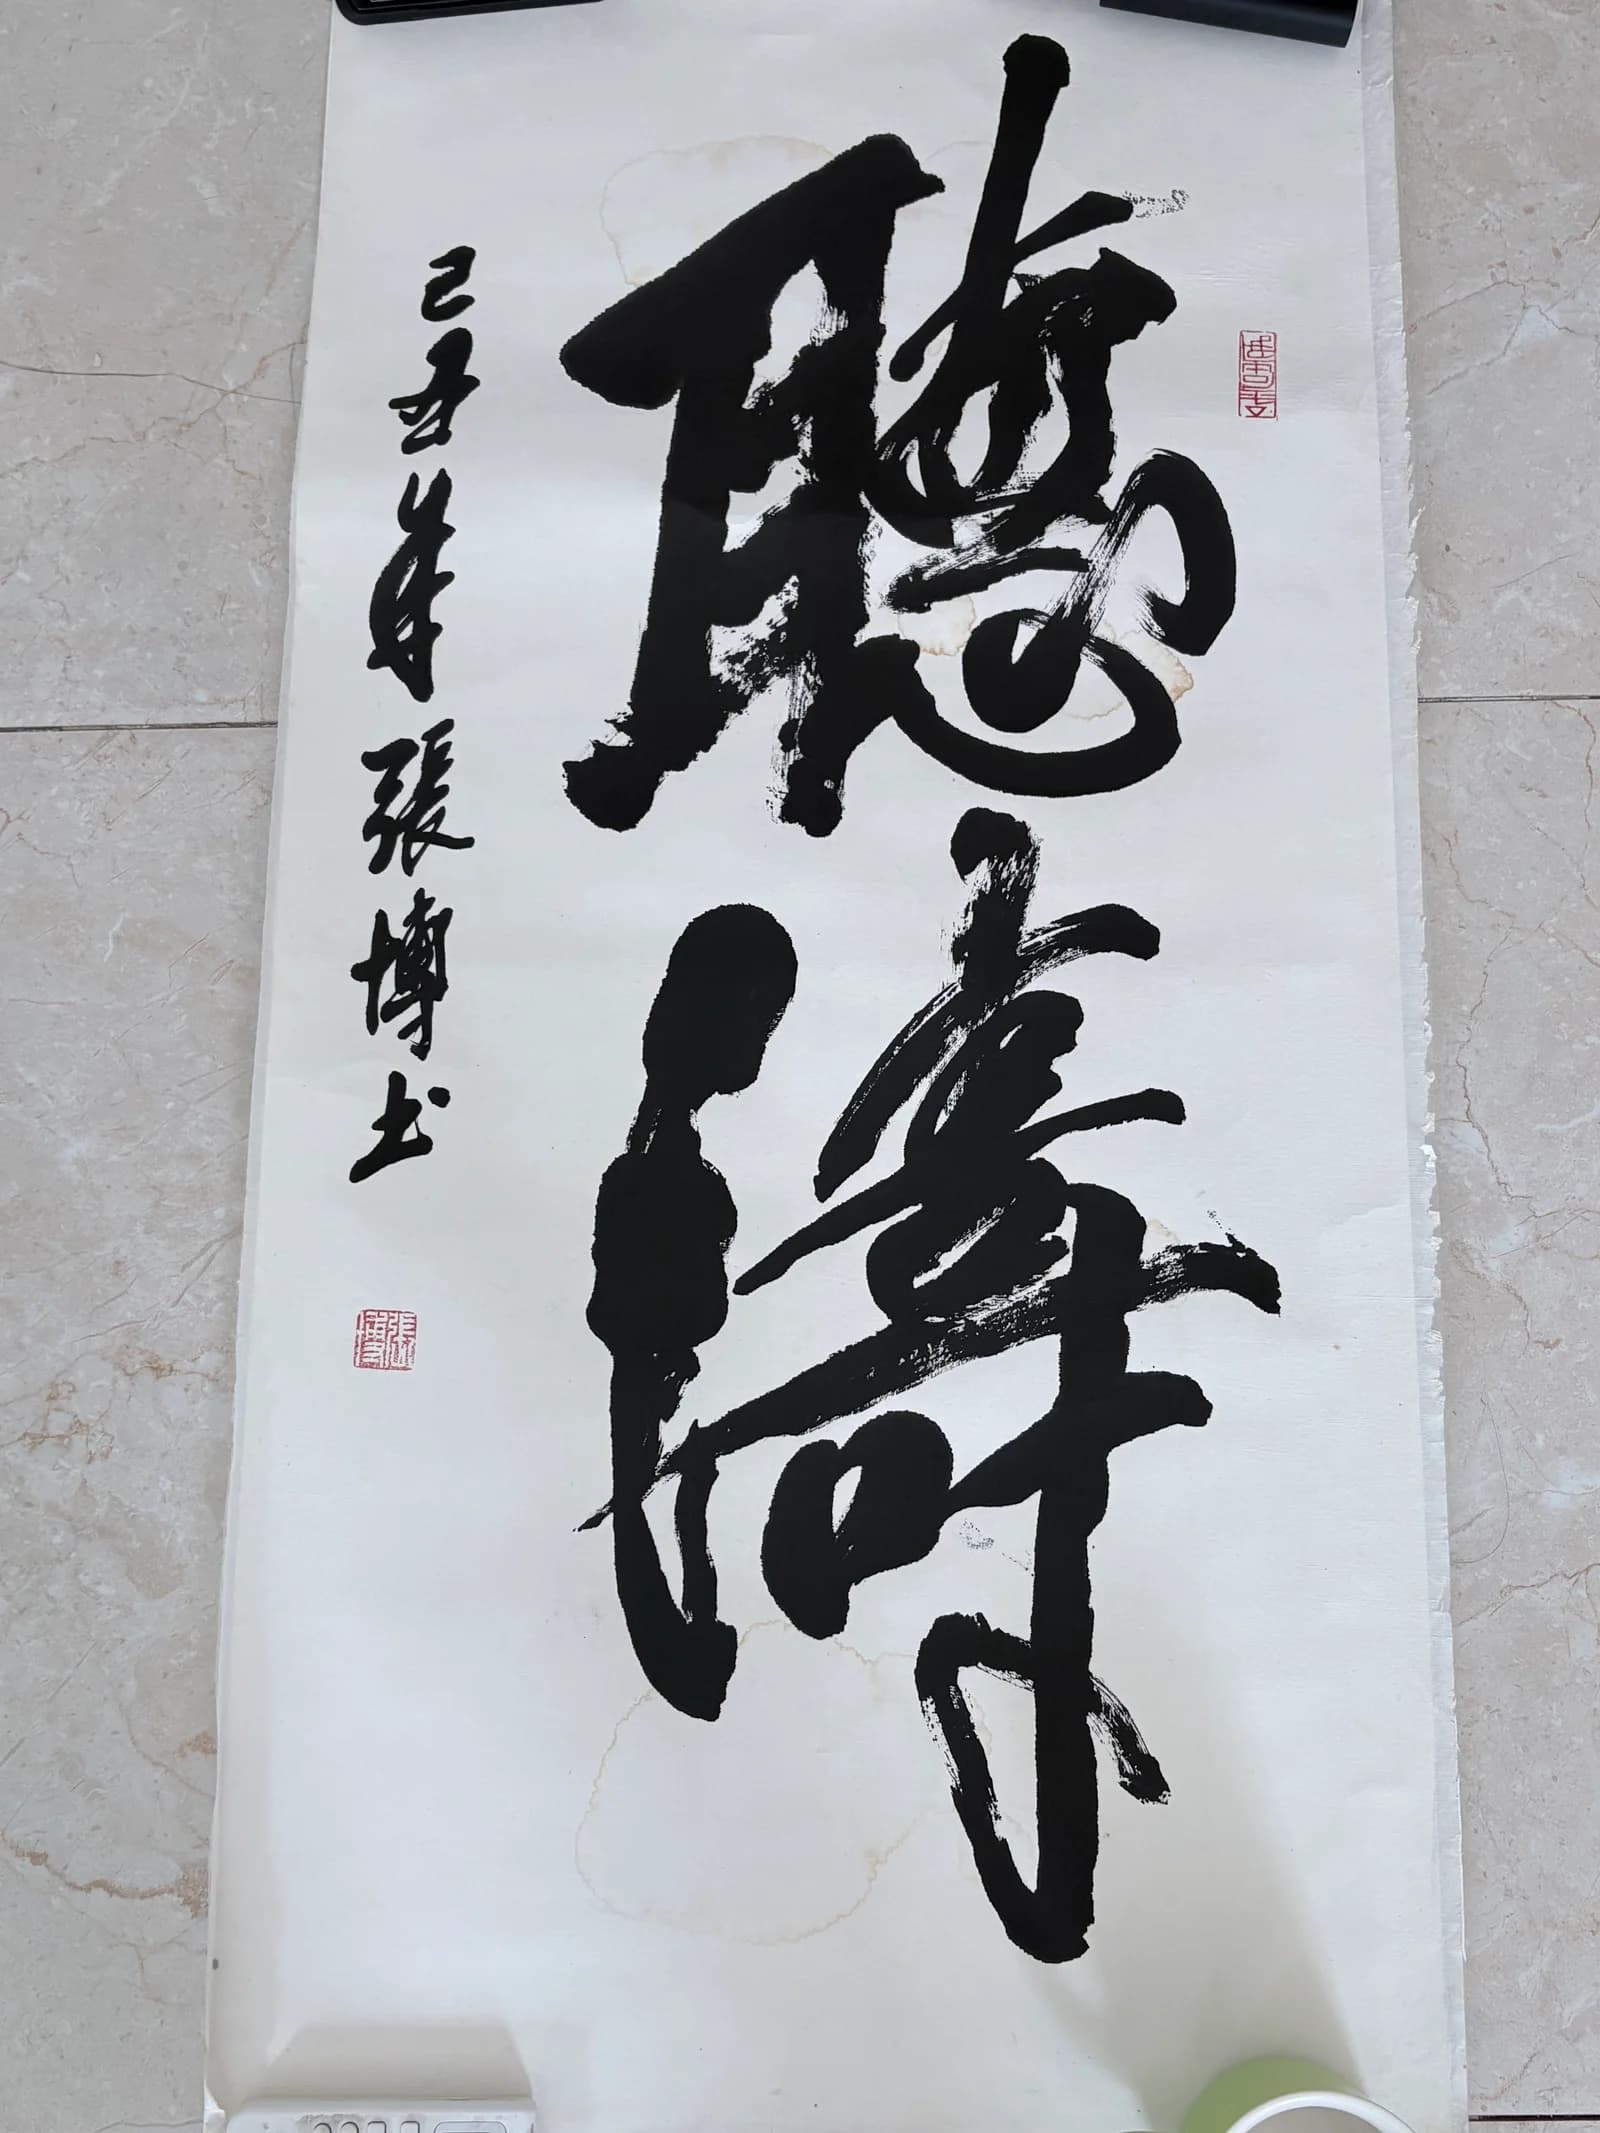 聽濤
己丑年張博书
張博